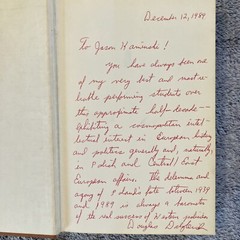 December 12, 1989
To Jason Kaminski!
You have always been one
of my very best and most re-
liable performing students over
the appropriate half-decade--
exhibiting a cosmopolitan intel-
lectual interest in European history
and politics generally and, naturally,
in Polish and Central/East
European affairs. The dilemma and
agony of Poland's fate between 1939
and 1989 is always a barometer
of the real success of Western
Douglas